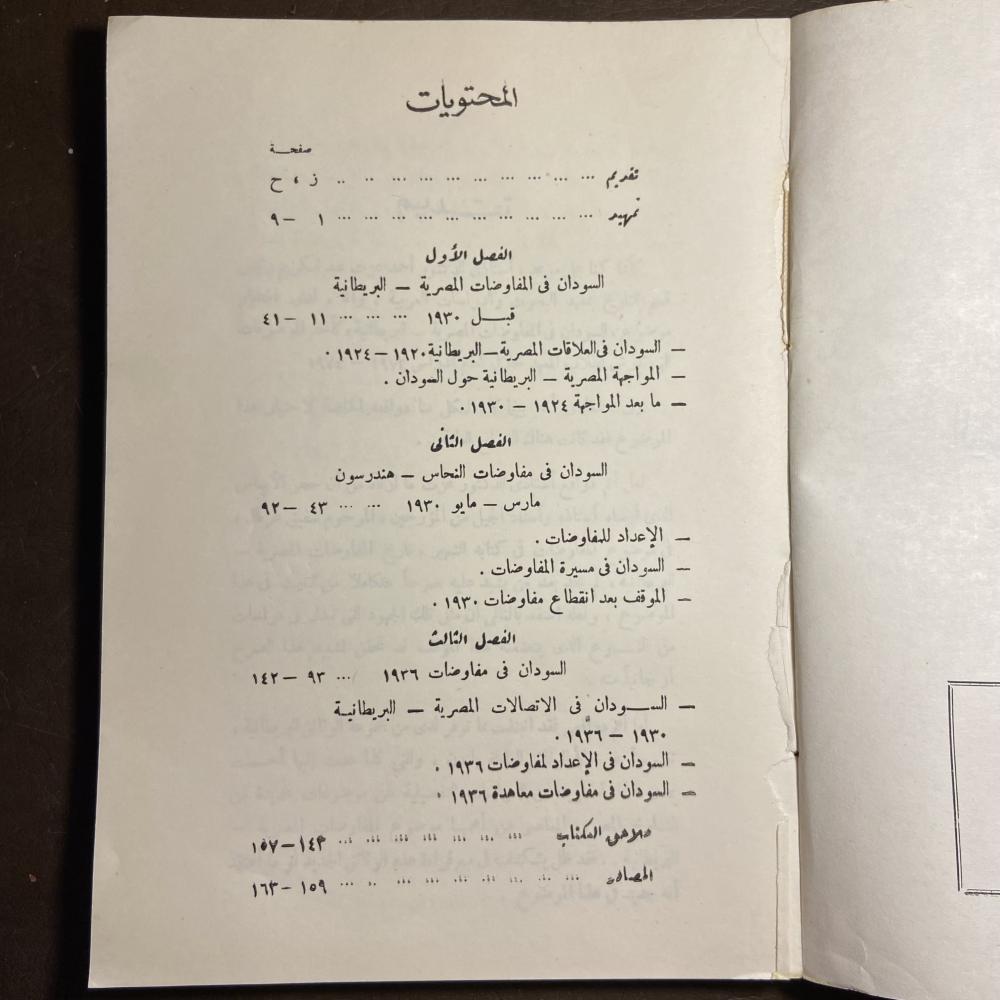 المحتويات
صفحة
تقديم ... ... ... ... ... ... ... ... .. .. ز ، ح
تمهيد ... ... ... ... ... ... ... ... ... ... ١ – ٩
الفصل الأول
السودان فى المفاوضات المصرية – البريطانية
قبــل ١٩٣٠ ... ... ... ١١ – ٤١
– السودان فى العلاقات المصرية – البريطانية ١٩٢٠ – ١٩٢٤ .
– المواجهة المصرية – البريطانية حول السودان .
– ما بعد المواجهة ١٩٢٤ – ١٩٣٠ .
الفصل الثانى
السودان فى مفاوضات النحاس – هندرسون
مارس – مايو ١٩٣٠ ... ... ٤٣ – ٩٢
– الإعداد للمفاوضات .
– السودان فى مسيرة المفاوضات .
– الموقف بعد انقطاع مفاوضات ١٩٣٠ .
الفصل الثالث
السودان فى مفاوضات ١٩٣٦ ... ٩٣ – ١٤٢
– الســودان فى الاتصالات المصرية – البريطانيـة
١٩٣٠ – ١٩٣٦ .
– السودان فى الإعداد لمفاوضات ١٩٣٦ .
– السودان فى مفاوضات معاهدة ١٩٣٦ .
ملاحق الكتاب ... ... ... ... ... ... ... ١٤٣ – ١٥٧
المصادر ... ... ... ... ... ... ... .. ... ١٥٩ – ١٦٣